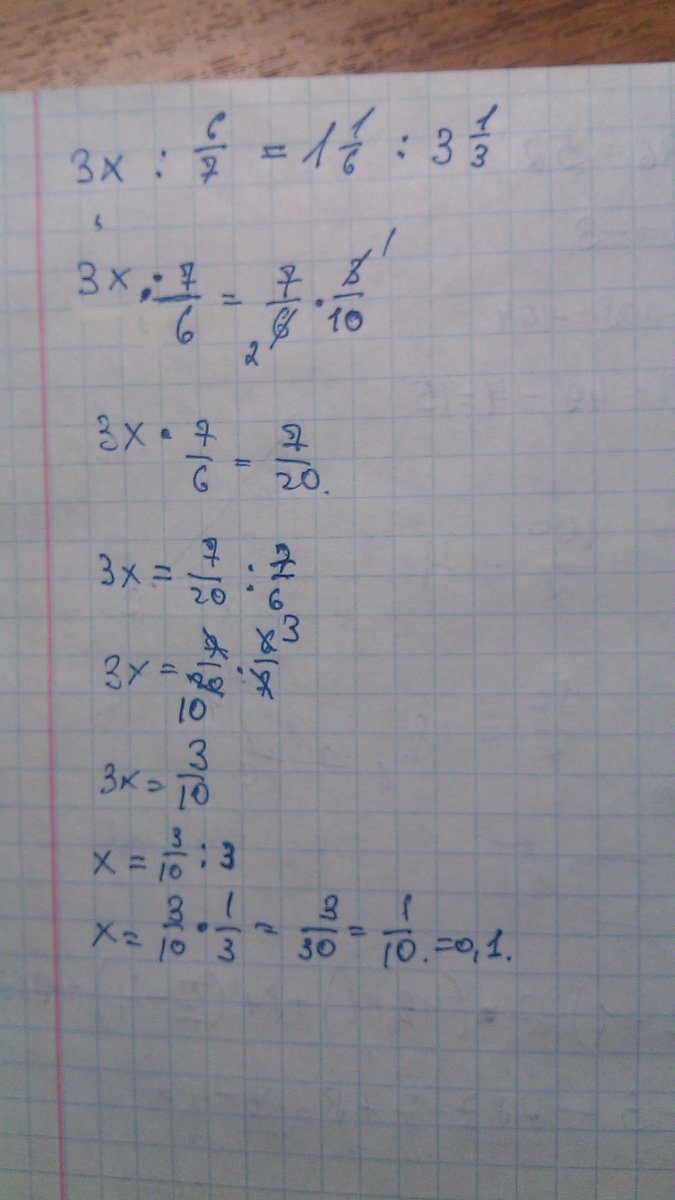 3x : 6/7 = 1 1/6 : 3 1/3
3x · 7/6 = 7/6 · 3/10 2 1
3x · 7/6 = 7/20.
3x = 7/20 : 7/6
3x = 7/20 · 6/7 10 3
3x = 3/10
x = 3/10 : 3
x = 3/10 · 1/3 = 3/30 = 1/10. = 0,1.